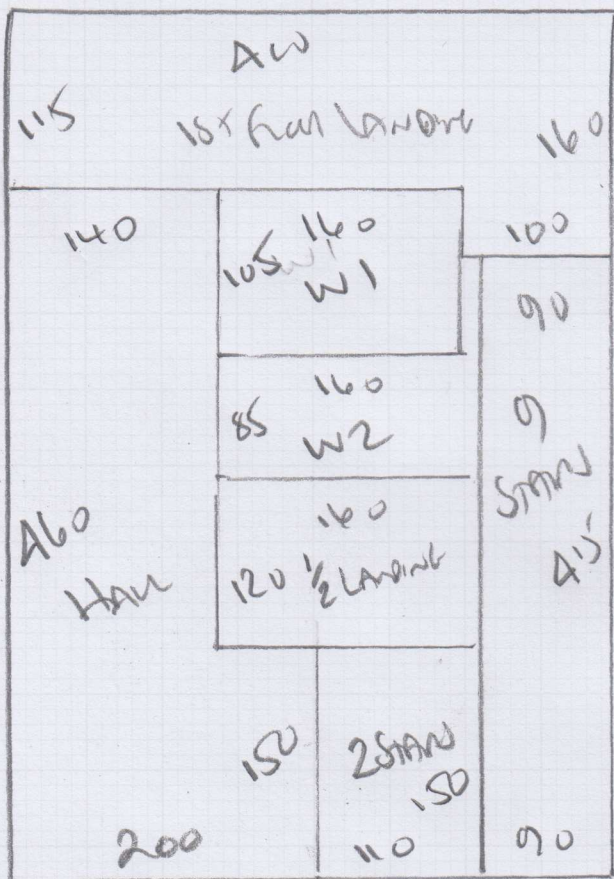 115
1st Floor LANDING
160
140
105
160
W1
100
90
85
160
W2
9
STAIRS
415
HALL
120
160
1/2 LANDING
150
2 STAIRS
150
200
110
90